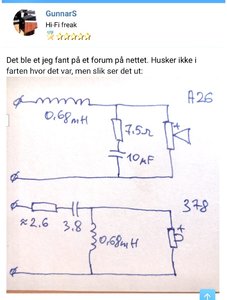 GunnarS
Hi-Fi freak
Det ble et jeg fant på et forum på nettet. Husker ikke i
farten hvor det var, men slik ser det ut:
A26
0.68mH
7.5Ω
10μF
378
≈2.6
3.8
0.68mH